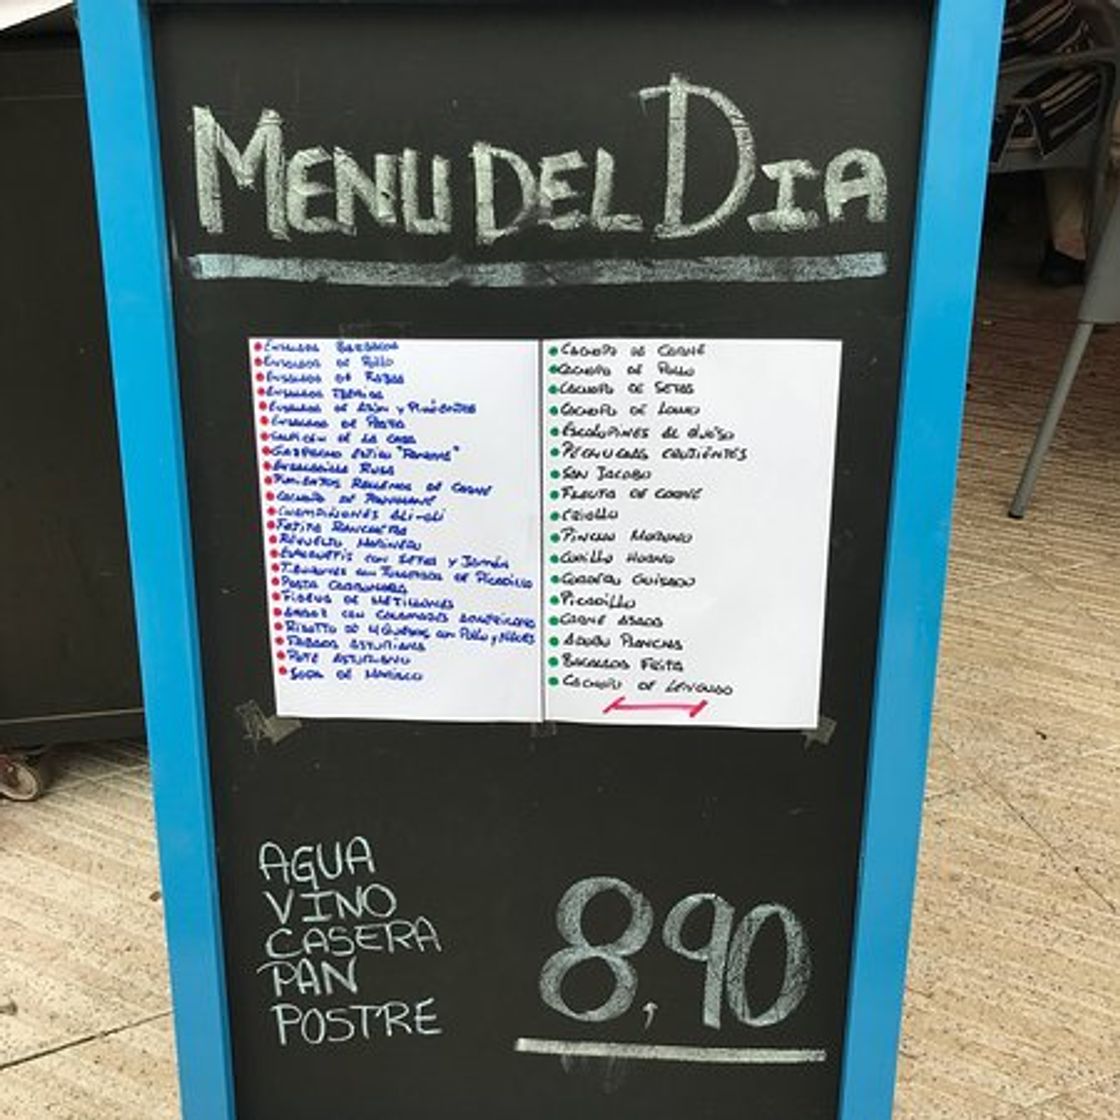 MENU DEL DIA
ENSALADA
ENSALADA DE POLLO
ENSALADA DE
ENSALADA IBERICA
ENSALADA DE ATÚN Y PIMIENTOS
ENSALADA DE PASTA
SALPICÓN DE LA CASA
GAZPACHO ESTILO
ENSALADILLA RUSA
PIMIENTOS RELLENOS DE CARNE
CACHOPO DE
CHAMPIÑONES ALI-OLI
FAJITA RANCHERA
REVUELTO MARINERO
ESPAGUETIS CON SETAS Y JAMÓN
DE PICADILLO
PASTA CARBONARA
FIDEUA DE MEJILLONES
ARROZ CON CALAMARES
RISOTTO DE 4 QUESOS CON POLLO Y NUECES
FABADA ASTURIANA
POTE ASTURIANO
SOPA DE MARISCO
CACHOPO DE CARNE
CACHOPO DE POLLO
CACHOPO DE SETAS
CACHOPO DE LOMO
ESCALOPINES AL QUESO
PECHUGAS CRUJIENTES
SAN JACOBO
FLAUTA DE CARNE
CRIOLLO
PINCHO MORUNO
HORNO
CORDERO GUISADO
PICADILLO
CARNE ASADA
ADOBU PLANCHA
BACALAO FRITA
CACHOPO DE LENGUADO
AGUA
VINO
CASERA
PAN
POSTRE
8,90